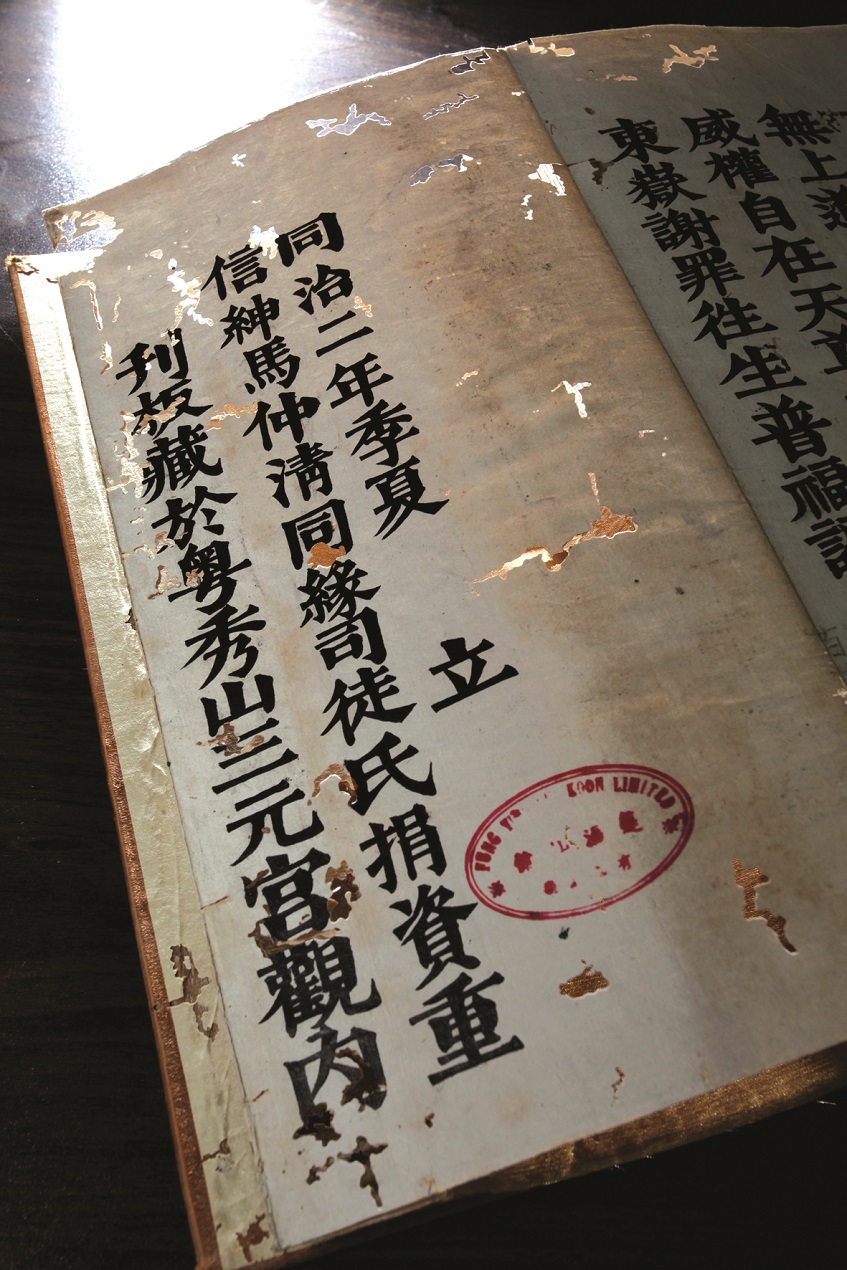 無上
威權自在天
東嶽謝罪往生普福
同治二年季夏 立
信紳馬仲清同緣司徒氏捐資重
刊板藏於粵秀山三元宮觀內
FUNG KOON LIMITED